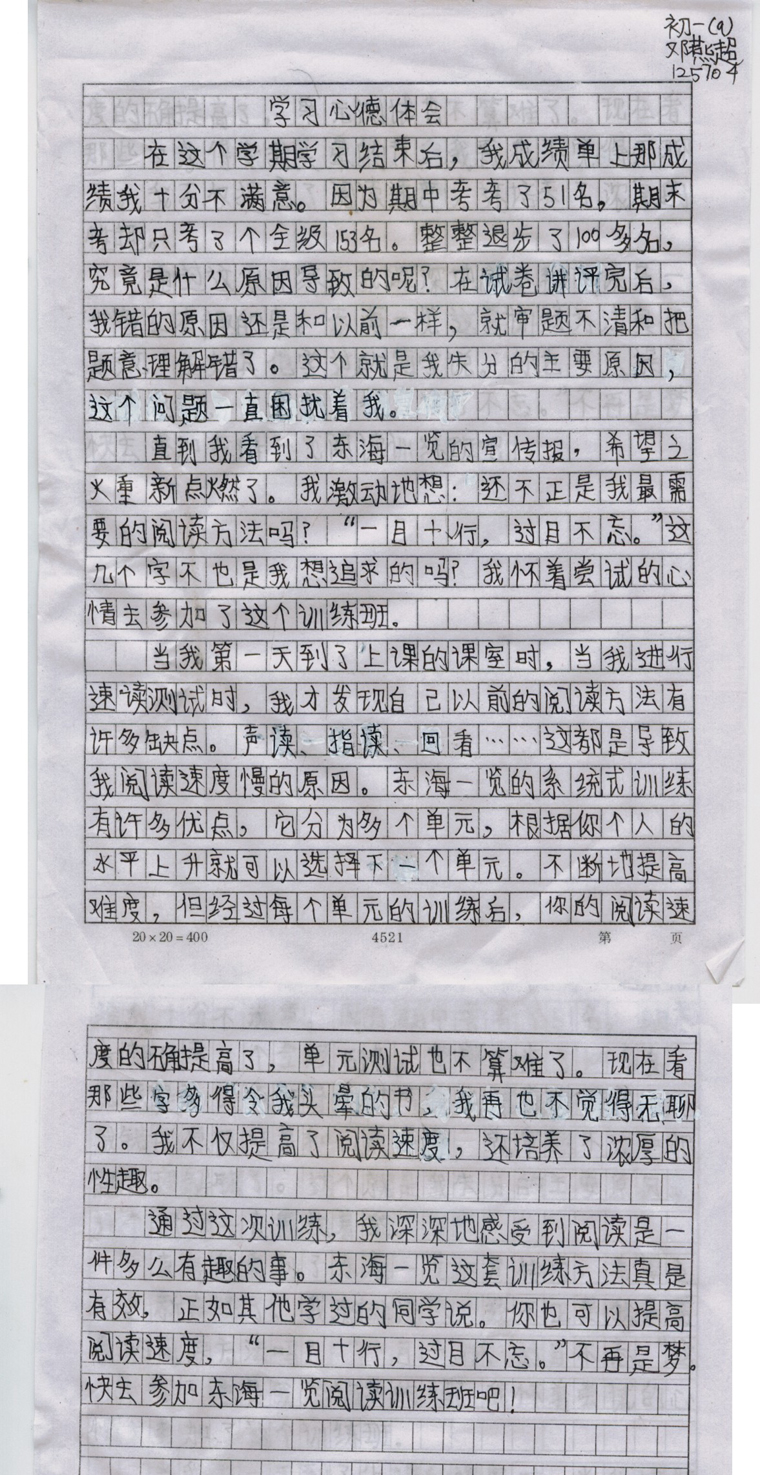 初一(9)
邓燕超
125704
学习心德体会
在这个学期学习结束后，我成绩单上那成
绩我十分不满意。因为期中考考了51名，期末
考却只考了个全级153名。整整退步了100多名，
究竟是什么原因导致的呢？在试卷讲评完后，
我错的原因还是和以前一样，就审题不清和把
题意理解错了。这个就是我失分的主要原因，
这个问题一直困扰着我。
直到我看到了东海一览的宣传报，希望之
火重新点燃了。我激动地想：还不正是我最需
要的阅读方法吗？“一目十行，过目不忘。”这
几个字不也是我想追求的吗？我怀着尝试的心
情去参加了这个训练班。
当我第一天到了上课的课室时，当我进行
速读测试时，我才发现自己以前的阅读方法有
许多缺点。声读、指读、回看……这都是导致
我阅读速度慢的原因。东海一览的系统式训练
有许多优点，它分为多个单元，根据你个人的
水平上升就可以选择下一个单元。不断地提高
难度，但经过每个单元的训练后，你的阅读速
20×20=400 4521 第 页
度的确提高了，单元测试也不算难了。现在看
那些字多得令我头晕的书，我再也不觉得无聊
了。我不仅提高了阅读速度，还培养了浓厚的
性趣。
通过这次训练，我深深地感受到阅读是一
件多么有趣的事。东海一览这套训练方法真是
有效，正如其他学过的同学说。你也可以提高
阅读速度，“一目十行，过目不忘。”不再是梦。
快去参加东海一览阅读训练班吧！